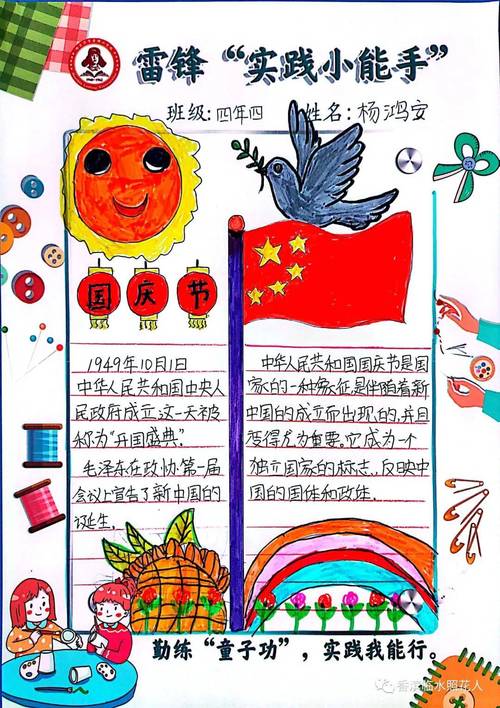 雷锋“实践小能手”
班级:四年四 姓名:杨鸿安
国庆节
1949年10月1日
中华人民共和国中央人
民政府成立,这一天被
称为“开国盛典”
毛泽东在政协第一届
会议上宣告了新中国的
诞生.
中华人民共和国国庆节是国
家的一种象征,是伴随着新
中国的成立而出现的,并且
变得尤为重要。它成为一个
独立国家的标志,反映中
国的国体和政体.
勤练“童子功”,实践我能行。
香滨临水照花人